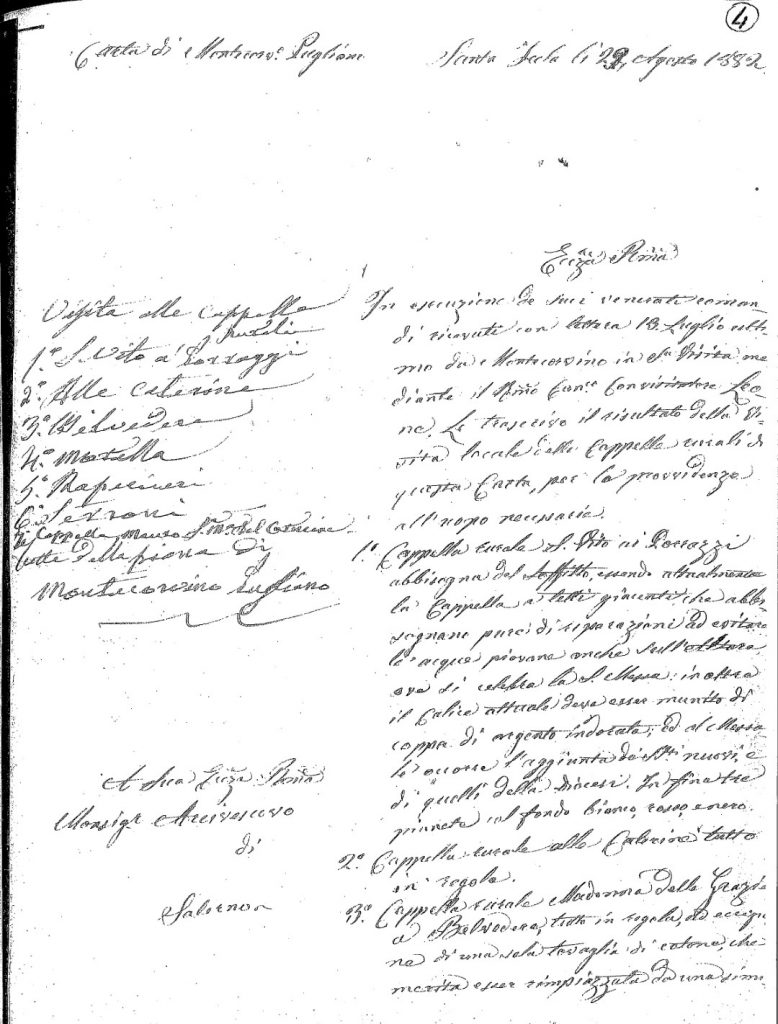 4
Curia di Montecorv.º Pugliano
Santa Tecla li 29, Agosto 1882
Ecc.za R.ma
Visita alle Cappelle
rurali
1.º S. Vito a' Porrazzi
2.º Alle Caterine
3.º Belvedere
4.º Macella
5.º Rapicineri
6.º Serroni
Cappella S. M.a del Carmine
tutte della piana di
Montecorvino Pugliano
A Sua Ecc.za R.ma
Monsig.r Arcivescovo
di
Salerno
In esecuzione de suoi venerati coman-
di ricevuti con lettera 13 Luglio ulti-
mo da Montecorvino in S.ta Visita me-
diante il R.mo Can.co Convisitatore Leo-
ne, Le trascrivo il risultato della Vi-
sita locale delle Cappelle rurali di
questa Curia, per le provvidenze
all'uopo necessarie.
1.º Cappella rurale S. Vito ai Porrazzi
abbisogna del soffitto, essendo attualmente
la Cappella a tetti giacenti, che abbi-
sognano pure di riparazioni ad evitare
le acque piovane anche sull'altare
ove si celebra la S. Messa: inoltre
il Calice attuale deve esser munito di
coppa di argento indorata; ed al Messa-
le occorre l'aggiunta de' S.ti nuovi, e
di quelli della Diocesi. In fine tre
pianete col fondo bianco, rosso, e nero.
2.º Cappella rurale alle Caterine tutto
in regola.
3.º Cappella rurale Madonna delle Grazie
a Belvedere, tutto in regola, ad eccezio-
ne di una sola tovaglia di cotone, che
merita esser rimpiazzata da una simi-